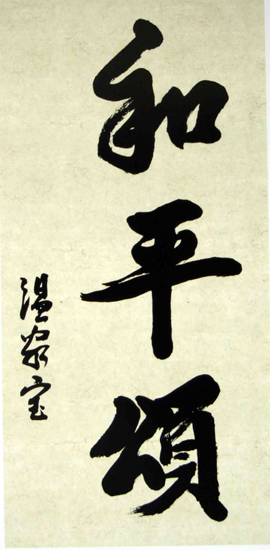 和平頌
温家宝